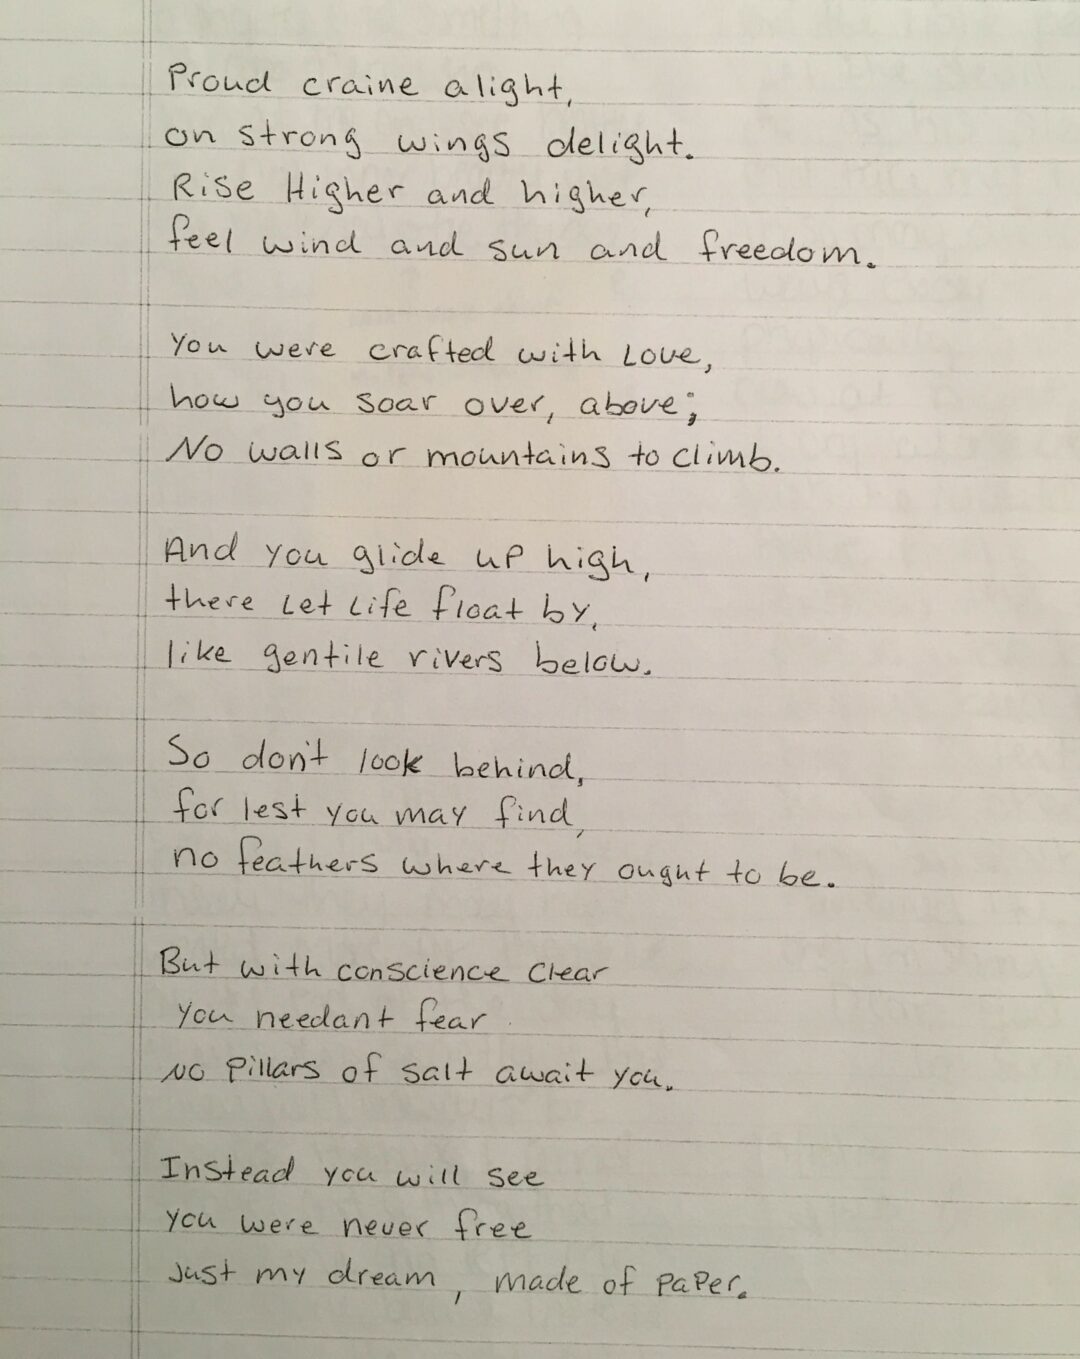 Proud craine alight,
on strong wings delight.
Rise Higher and higher,
feel wind and sun and freedom.
You were crafted with Love,
how you soar over, above;
No walls or mountains to climb.
And you glide up high,
there Let Life float by,
like gentile rivers below.
So don't look behind,
for lest you may find,
no feathers where they ought to be.
But with conscience Clear
You needant fear
No Pillars of salt await you.
Instead you will see
you were never free
Just my dream, made of paper.